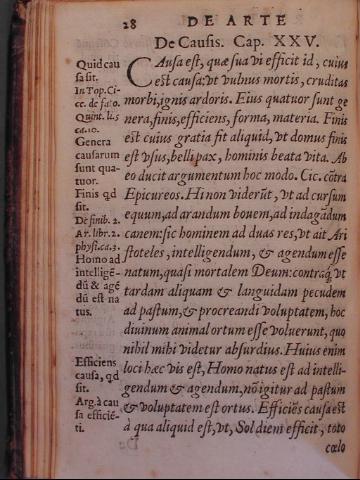 28 DE ARTE
De Causis. Cap. XXV.
Quid cau
sa sit.
In Top. Ci-
ce. de fato.
Quint. li. 5
ca. 10.
Genera
causarum
sunt qua-
tuor.
Finis qd
sit.
De finib. 2.
Ar. libr. 2.
physi. ca. 3.
Homo ad
intelligē-
dū & agē
dū est na
tus.
Efficiens
causa, qd
sit.
Arg. à cau
sa efficiē-
ti.
CAusa est, quæ sua vi efficit id, cuius
est causa: vt vulnus mortis, cruditas
morbi, ignis ardoris. Eius quatuor sunt ge
nera, finis, efficiens, forma, materia. Finis
est cuius gratia fit aliquid, vt domus finis
est vsus, belli pax, hominis beata vita. Ab
eo ducit argumentum hoc modo. Cic. cōtra
Epicureos. Hi non viderūt, vt ad cursum
equum, ad arandum bouem, ad indagādum
canem: sic hominem ad duas res, vt ait Ari
stoteles, intelligendum, & agendum esse
natum, quasi mortalem Deum: contraq; vt
tardam aliquam & languidam pecudem
ad pastum, & procreandi voluptatem, hoc
diuinum animal ortum esse voluerunt, quo
nihil mihi videtur absurdius. Huius enim
loci hæc vis est, Homo natus est ad intelli-
gendum & agendum, nō igitur ad pastum
& voluptatem est ortus. Efficiēs causa est
à qua aliquid est, vt, Sol diem efficit, toto
cœlo